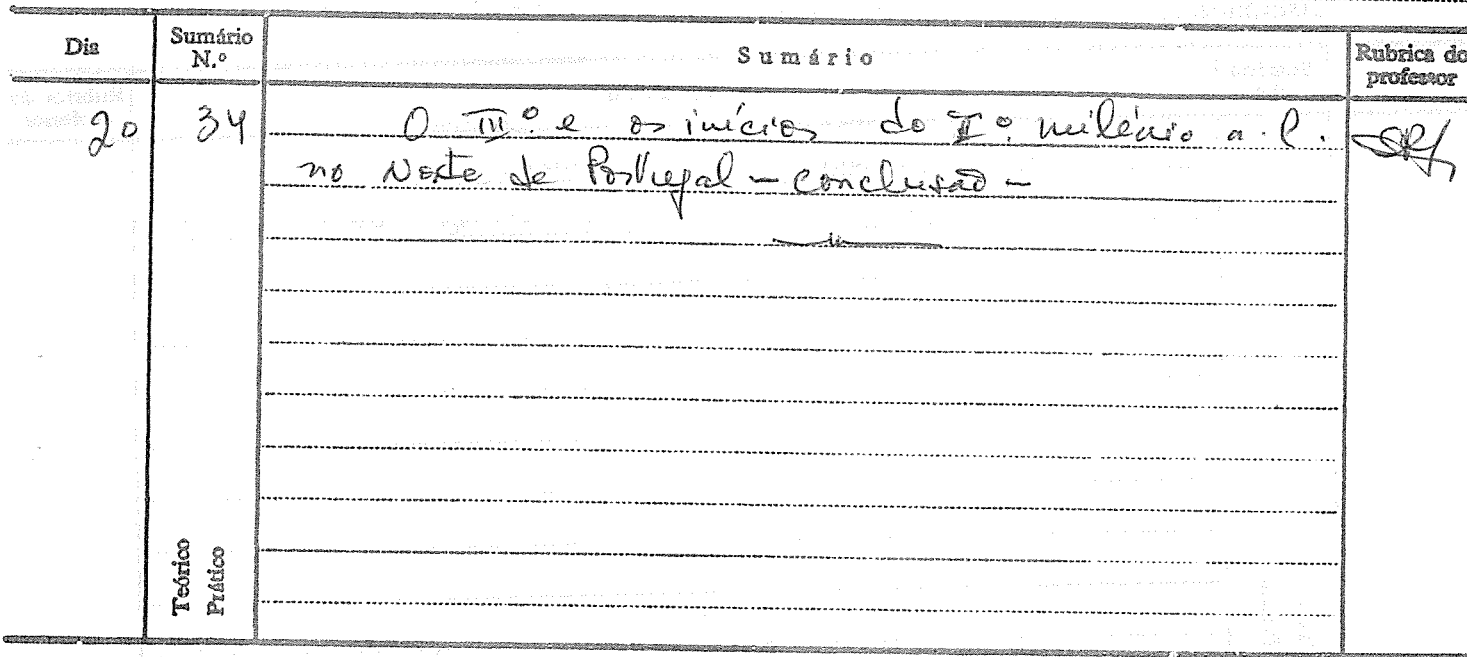 Dia Sumário N.º Sumário Rubrica do professor
20 34 O III.º e os inícios do I.º milénio a. C.
no Norte de Portugal - conclusão -
Teórico
Prático